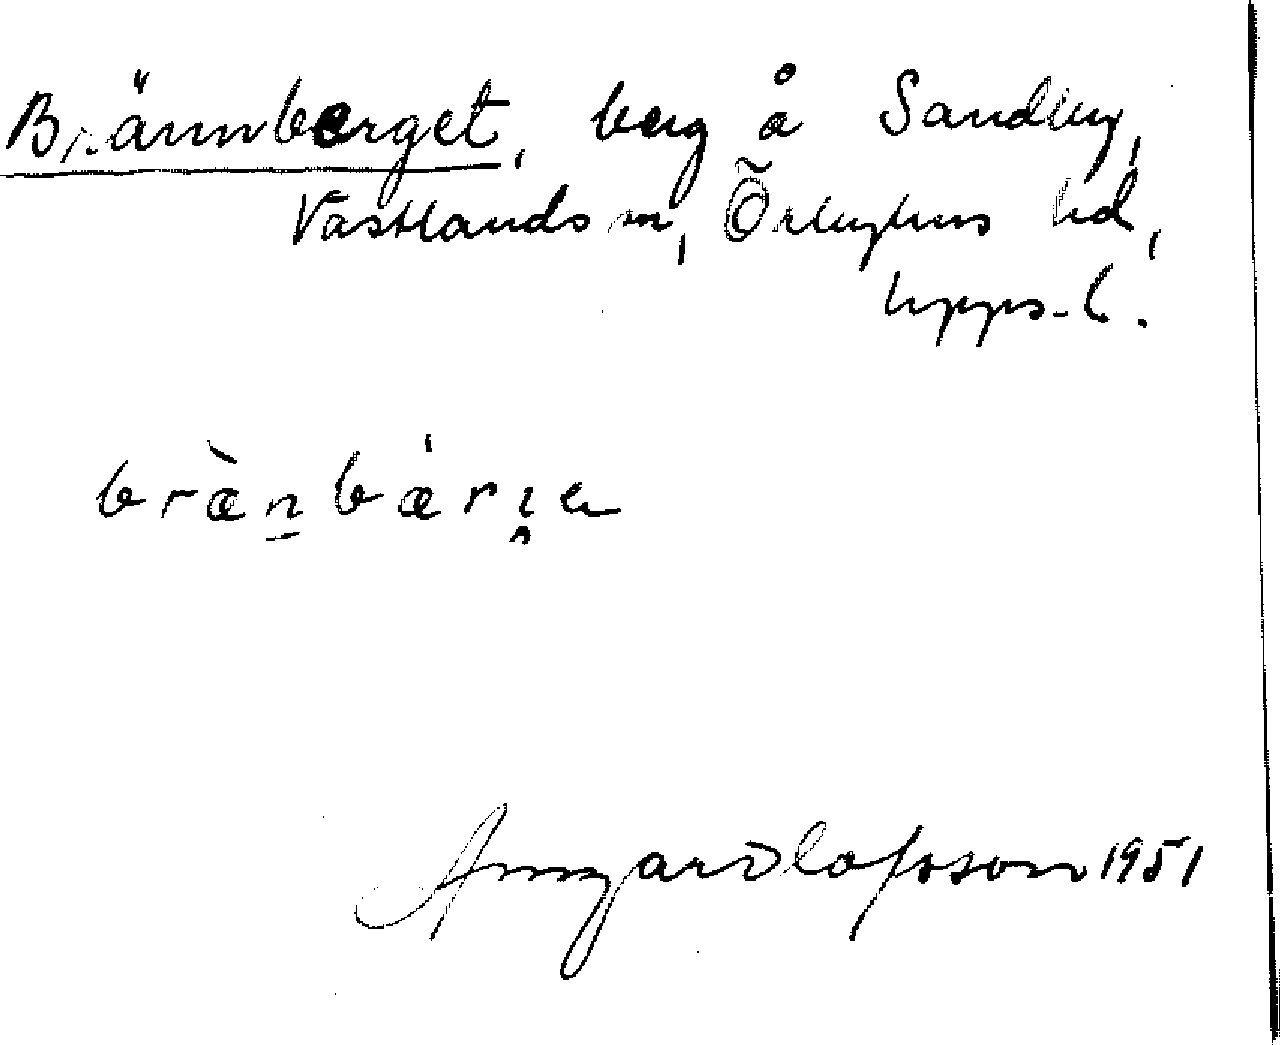 Brännberget, berg å Sandby,
Västlands sn, Örbyhus hd,
Upps. l.
bræ̀n̠bǽrɪ̭a
Olafsson 1951